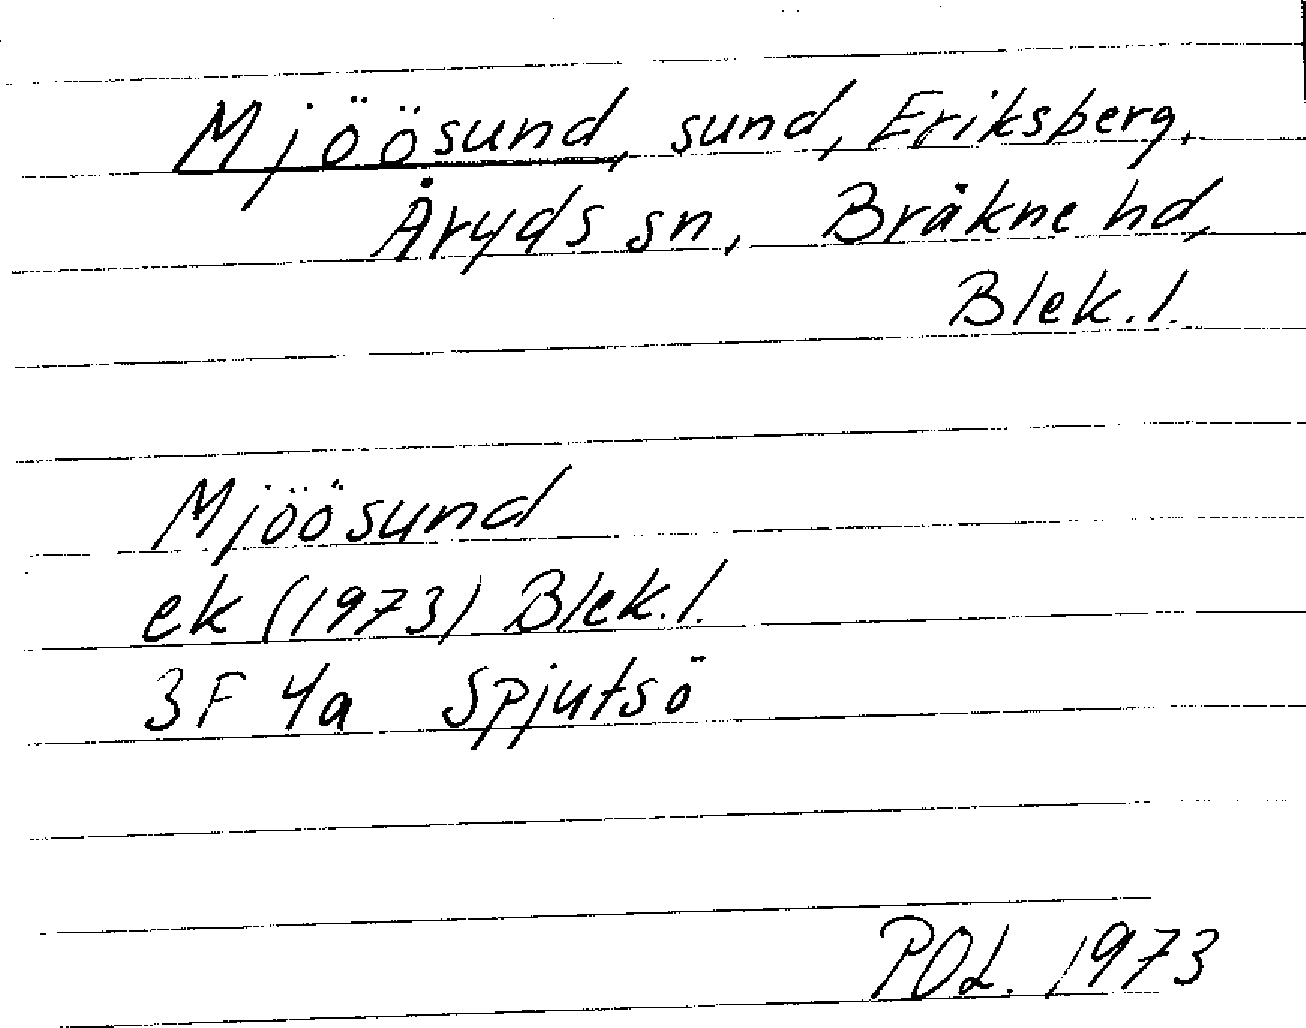 Mjöösund, sund, Eriksberg,
Åryds sn, Bräkne hd,
Blek. l.
Mjöösund
ek (1973) Blek. l.
3F 4a Spjutsö
POL. 1973